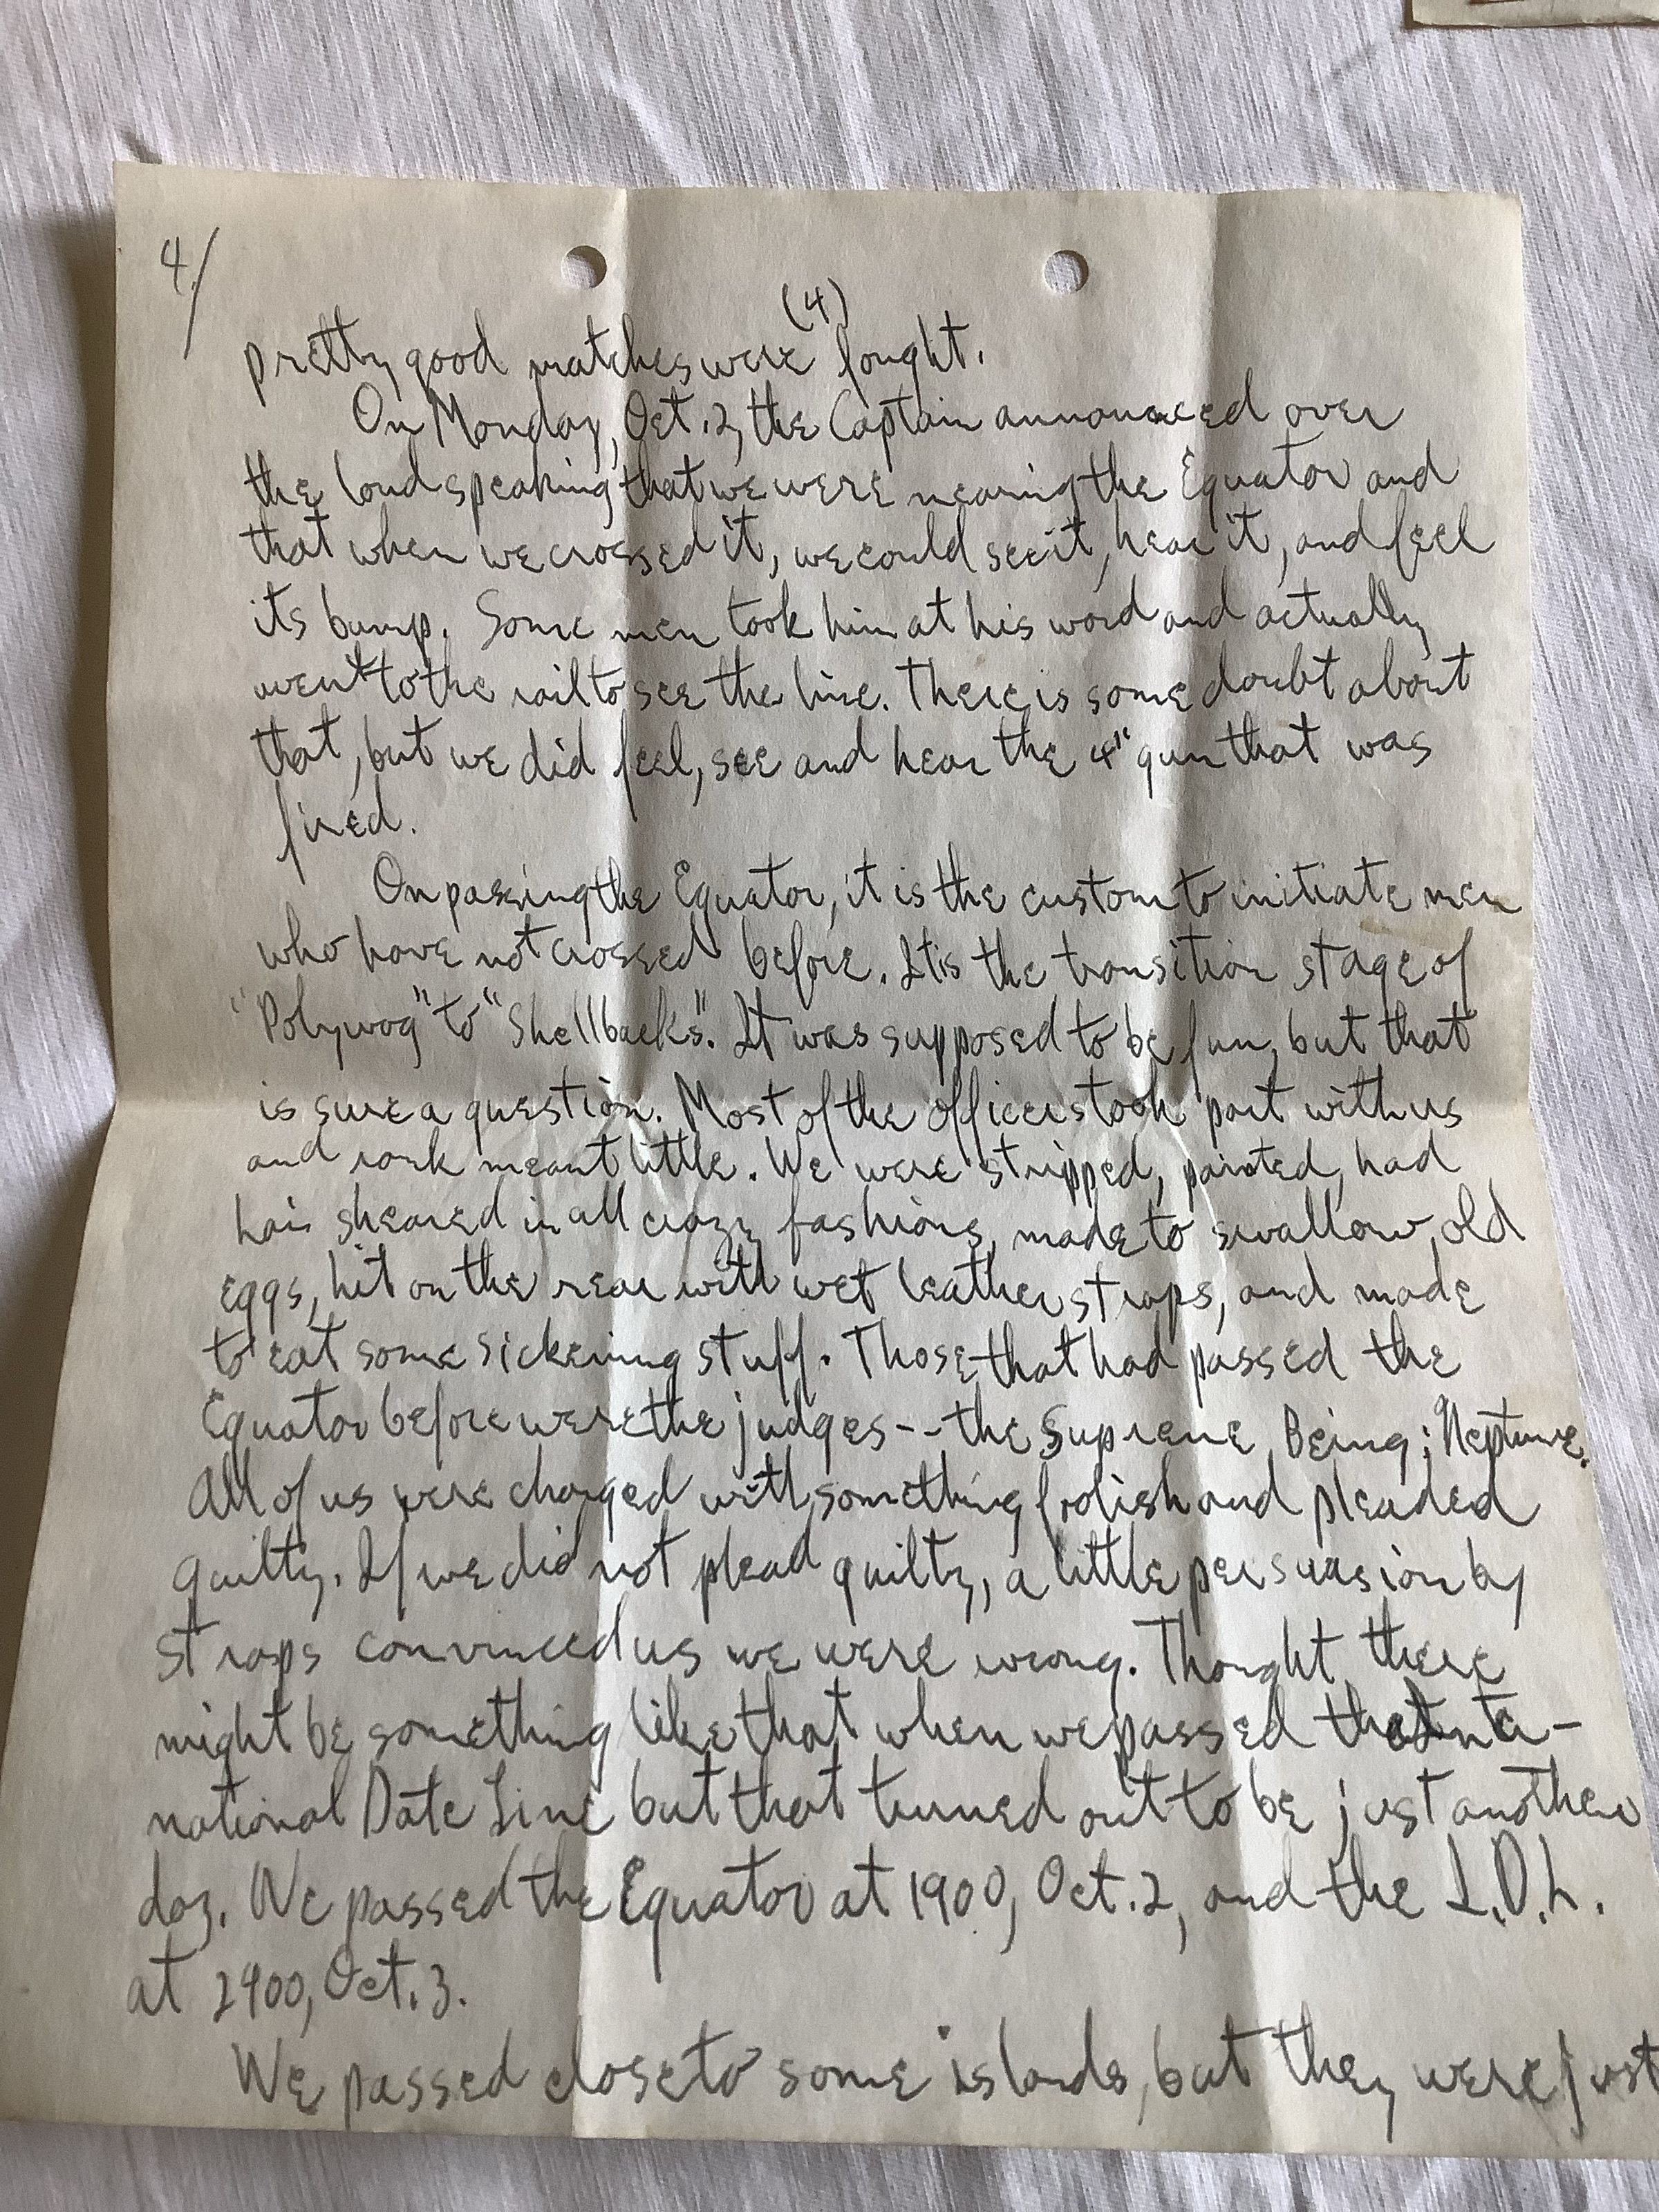 4/
(4)
pretty good matches were fought.
On Monday, Oct. 2, the Captain announced over
the loud speaking that we were nearing the Equator and
that when we crossed it, we could see it, hear it, and feel
its bump. Some men took him at his word and actually
went to the rail to see the line. There is some doubt about
that, but we did feel, see and hear the 4" gun that was
fired.
On passing the Equator, it is the custom to initiate men
who have not crossed before. It is the transition stage of
"Polywog" to "Shellbacks". It was supposed to be fun, but that
is sure a question. Most of the officers took part with us
and rank meant little. We were stripped, painted, had
hair sheared in all crazy fashions, made to swallow old
eggs, hit on the rear with wet leather straps, and made
to eat some sickening stuff. Those that had passed the
Equator before were the judges -- the Supreme Being; Neptune.
All of us were charged with something foolish and pleaded
guilty. If we did not plead guilty, a little persuasion by
straps convinced us we were wrong. Thought there
might be something like that when we passed the Inter-
national Date Line but that turned out to be just another
day. We passed the Equator at 1900, Oct. 2, and the I.D.L.
at 2400, Oct. 3.
We passed close to some islands, but they were just